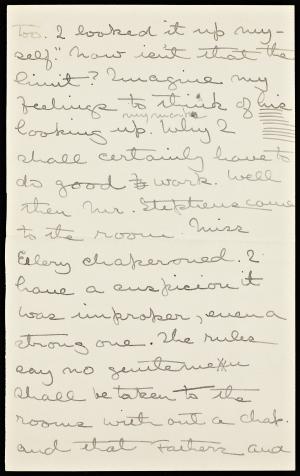 too. I looked it up my-
self." Now isn't that the
limit? Imagine my
feelings to think of his
my marks
looking up. Why I
shall certainly have to
do good work. Well
then Mr. Stephens came
to the room. Miss
Ellery chaperoned. I
have a suspicion it
was improper, even a
strong one. The rules
say no gentlemen
shall be taken to the
rooms with out a chap.
and that Fathers and